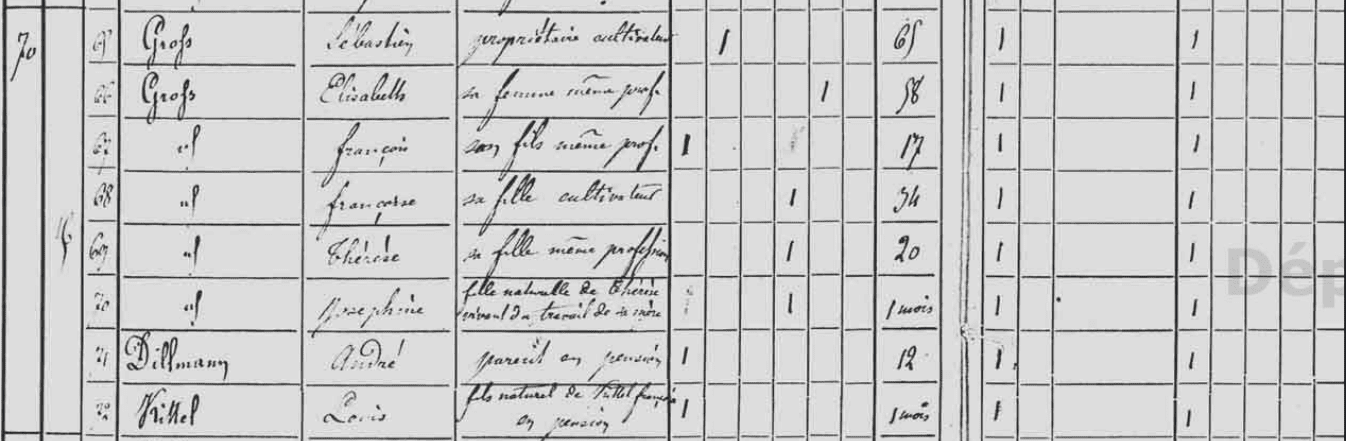 70 65 Gross Sébastien propriétaire cultivateur 1 65 1 1
66 Gross Elisabeth sa femme même prof. 1 58 1 1
67 id françois son fils même prof. 1 17 1 1
68 id françoise sa fille cultivateur 1 34 1 1
69 id Thérèse sa fille même profession 1 20 1 1
70 id Josephine fille naturelle de Thérèse 1 1 mois 1 1
vivant du travail de sa mère
71 Dillmann André parent en pension 1 12 1 1
72 Kittel Louis fils naturel de Kittel 1 1 mois 1 1
en pension
Dép